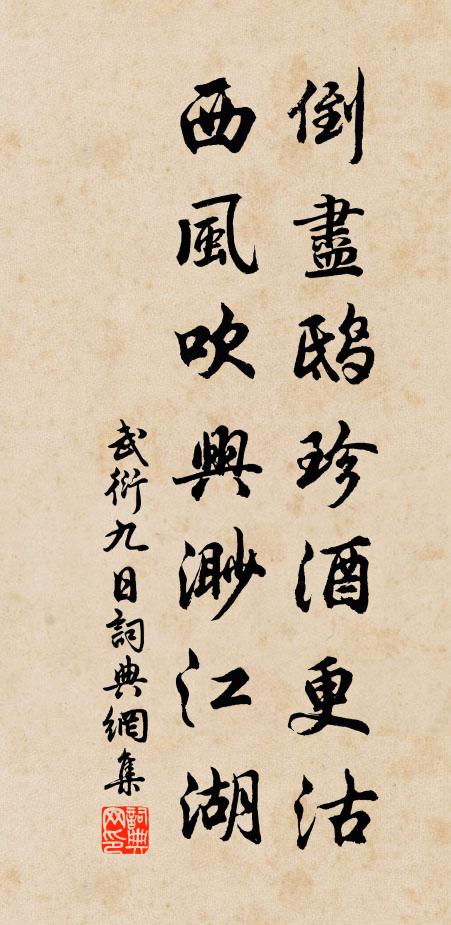 倒盡鴟珍酒更沽
西風吹興渺江湖
武衍九日詞典網集
詞典网印